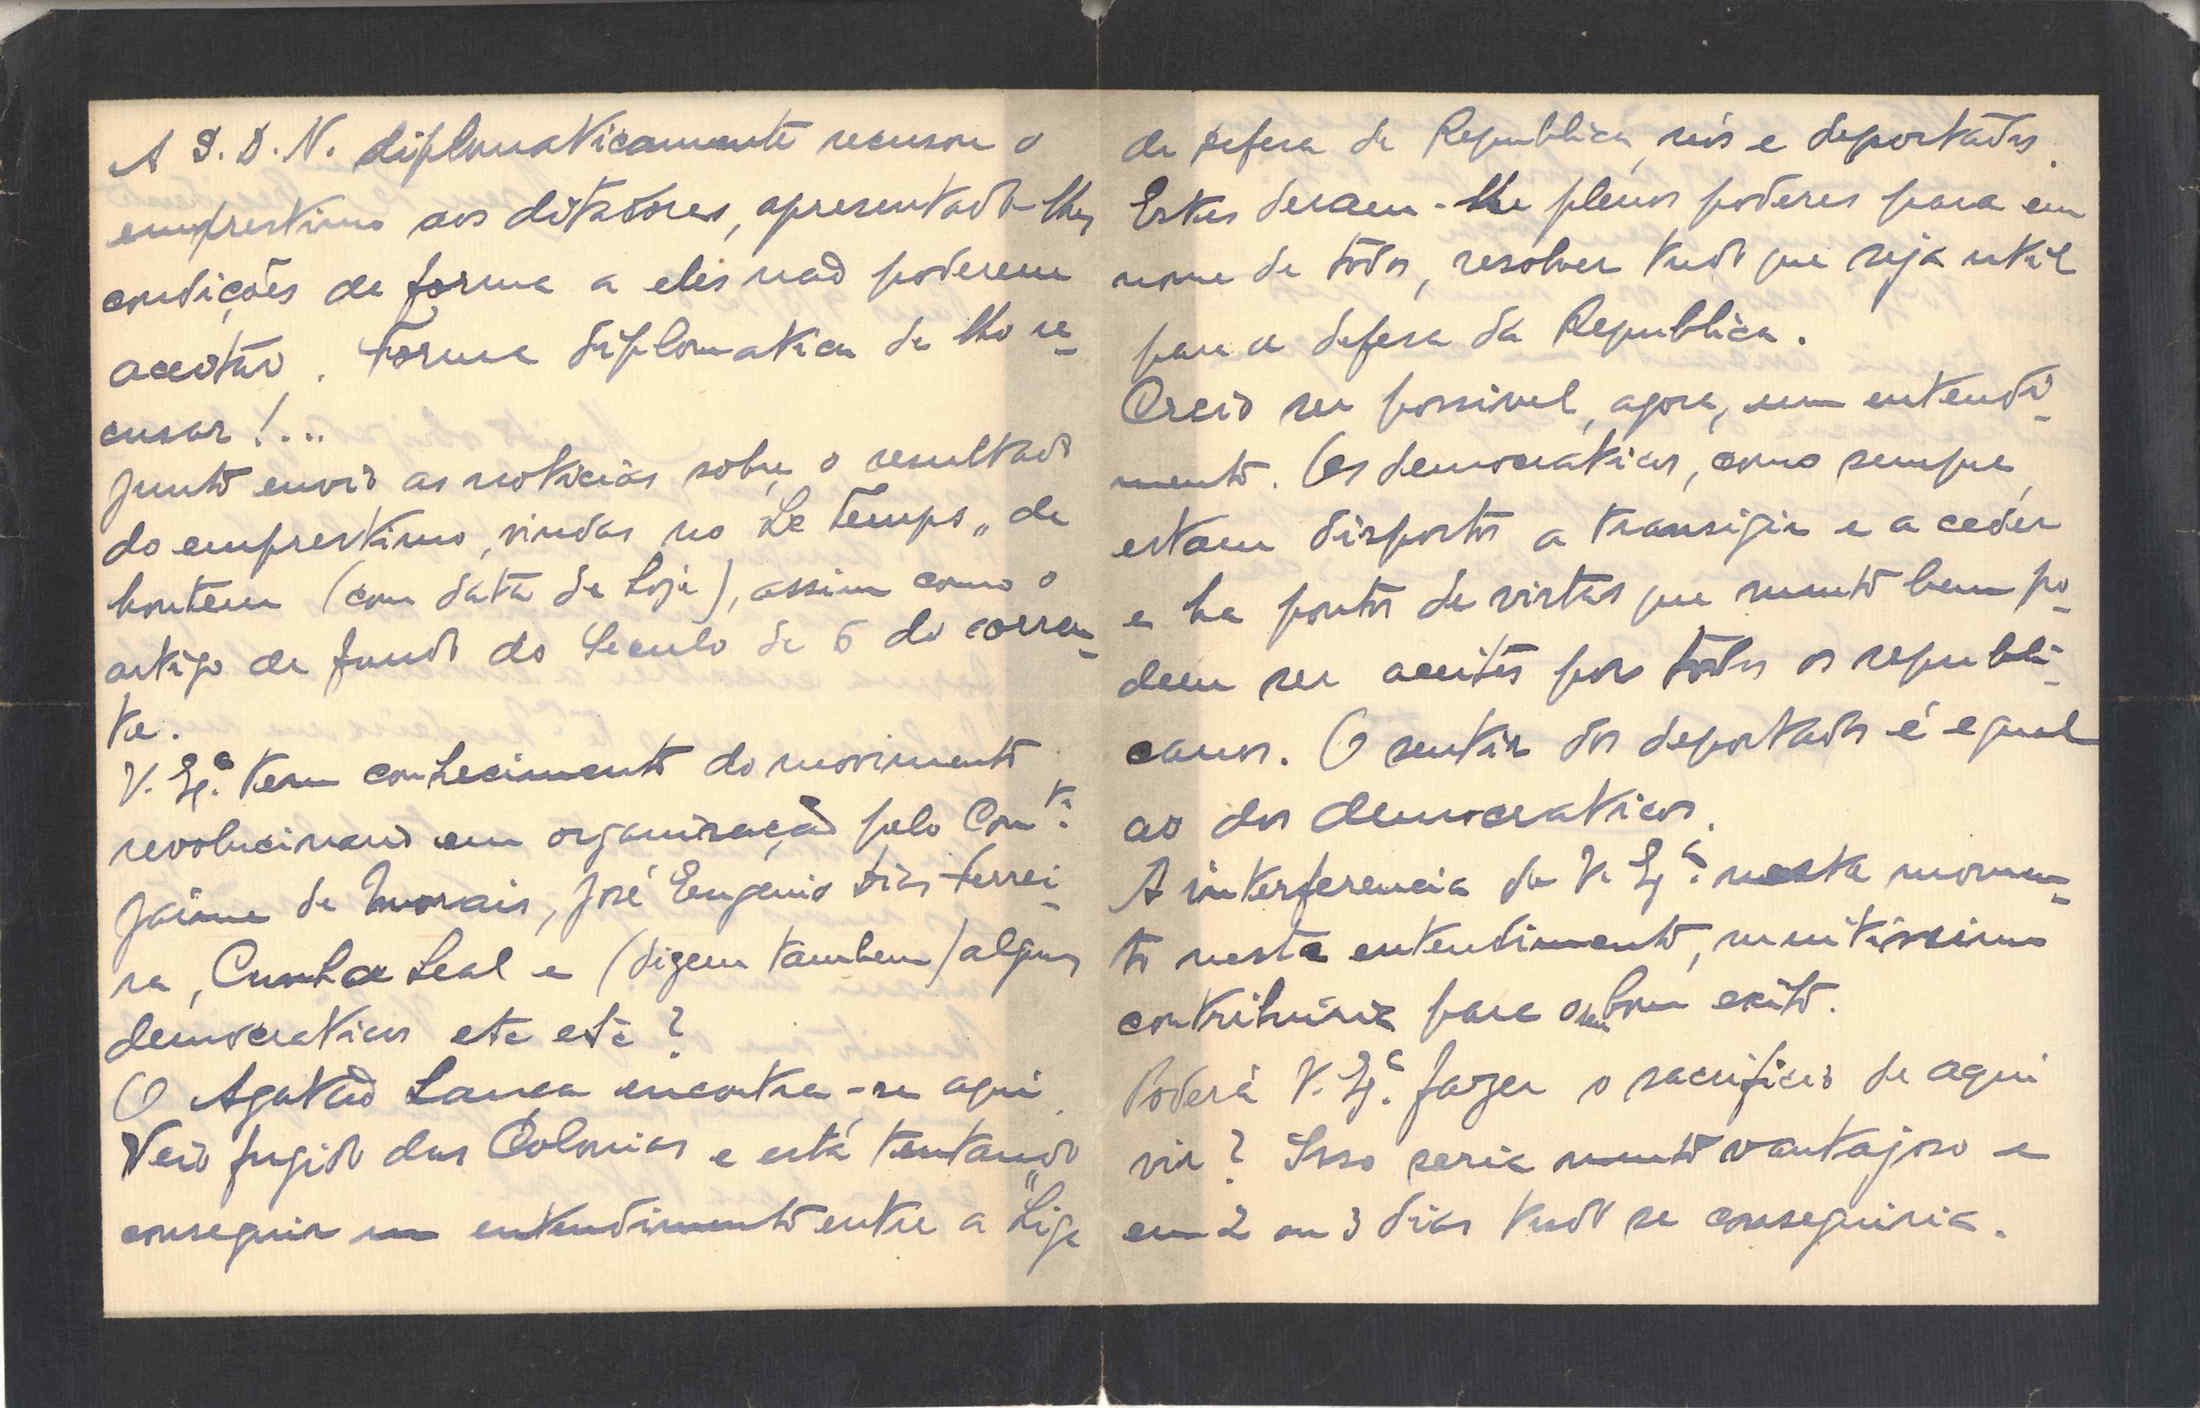 A S. D. N. diplomaticamente recusou o
emprestimo aos ditadores, apresentado-lhes
condições de forma a eles não poderem
aceitar. Forma diplomatica de lho re-
cusar!...
Junto envio as noticias sobre o resultado
do emprestimo, vindas no Le Temps„ de
hontem (com data de hoje), assim como o
artigo de fundo do Seculo de 6 do corren-
te.
V. Ex.ª tem conhecimento do movimento
revolucinario em organização pelo Com.te
Jaime de Morais, José Eugenio Dias Ferrei-
ra, Cunha Leal e (dizem tambem) alguns
democraticos etc etc?
O Agatão Lança encontra-se aqui.
Veio fugido das Colonias e está tentando
conseguir um entendimento entre a "Liga
de Defesa da Republica, nós e deportados.
Estes deram-lhe plenos poderes para em
nome de todos, resolver tudo que seja util
para a defesa da Republica.
Creio ser possivel, agora, um entendi-
mento. Os democraticos, como sempre,
estam dispostos a transigir e a ceder
e ha pontos de vistas que muito bem po-
dem ser aceites por todos os republi-
canos. O sentir dos deportados é egual
ao dos democraticos.
A interferencia de V. Ex.ª neste momen-
to neste entendimento, muitissimo
contribuiria para o seu bom exito.
Poderá V. Ex.ª fazer o sacrificio de aqui
vir? Isso seria muito vantajoso e
em 2 ou 3 dias tudo se conseguiria.